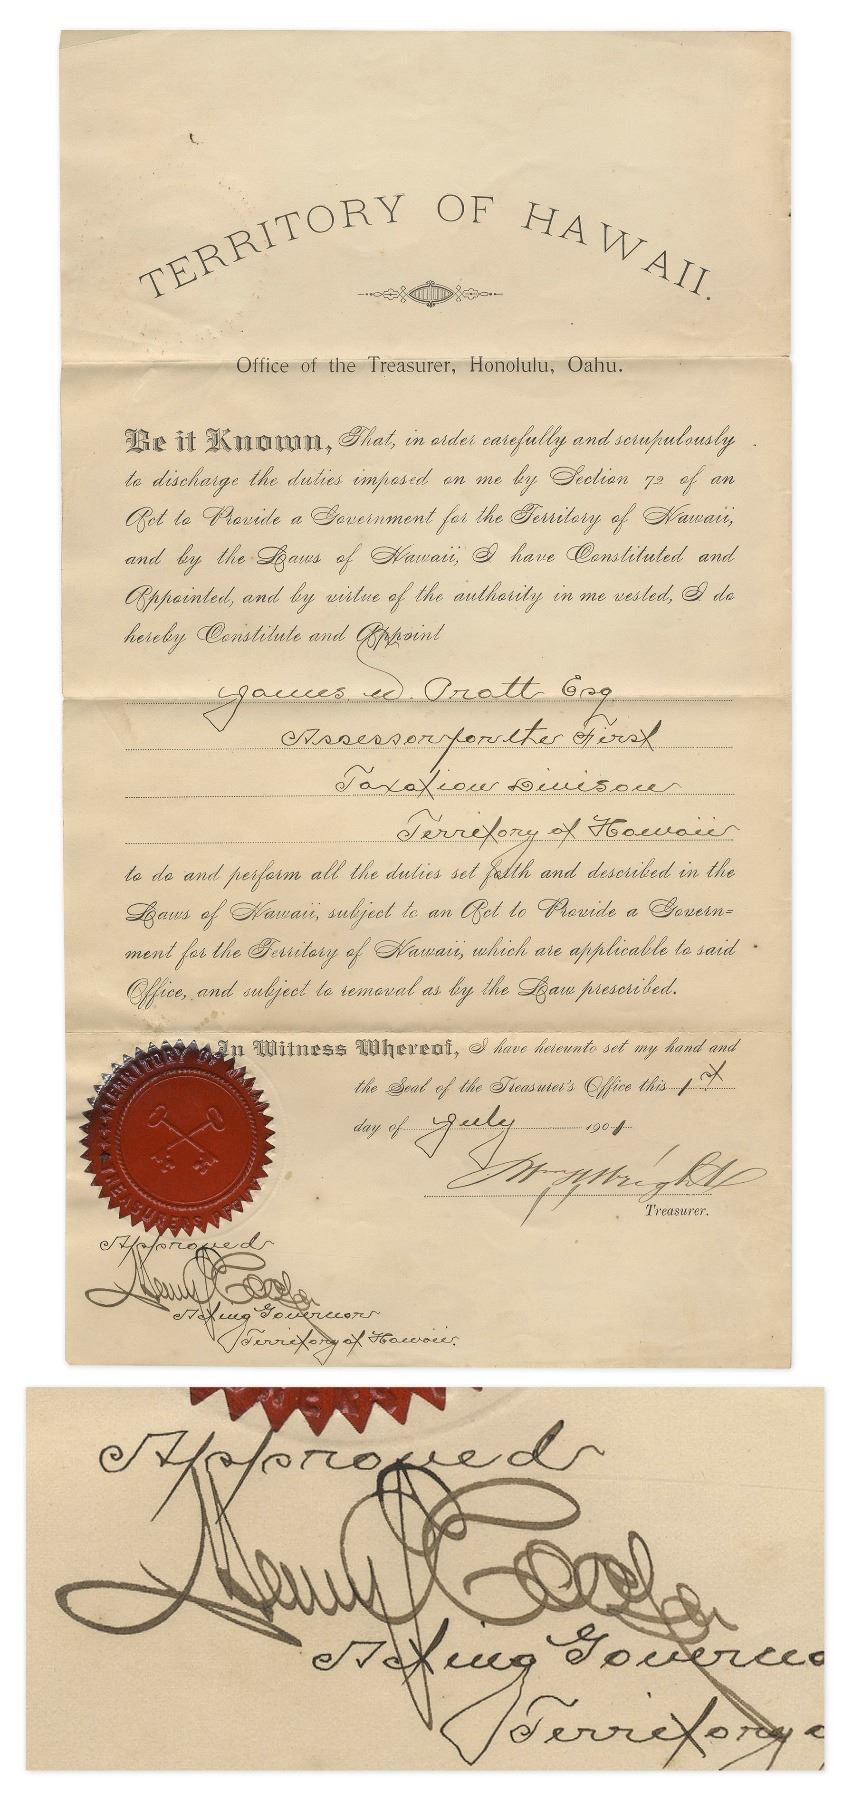 TERRITORY OF HAWAII.
Office of the Treasurer, Honolulu, Oahu.
Be it Known, That, in order carefully and scrupulously
to discharge the duties imposed on me by Section 72 of an
Act to Provide a Government for the Territory of Hawaii,
and by the Laws of Hawaii, I have Constituted and
Appointed, and by virtue of the authority in me vested, I do
hereby Constitute and Appoint
James W. Pratt Esq
Assessor for the First
Taxation Divison
Territory of Hawaii
to do and perform all the duties set forth and described in the
Laws of Hawaii, subject to an Act to Provide a Govern=
ment for the Territory of Hawaii, which are applicable to said
Office, and subject to removal as by the Law prescribed.
In Witness Whereof, I have hereunto set my hand and
the Seal of the Treasurer's Office this 1st
day of July 1901
Wm H Wright
Treasurer.
TERRITORY OF
TREASURERS
Approved
Henry E Cooper
Acting Governor
Territory of Hawaii.
Approved
Henry E Cooper
Acting Governo
Territory o